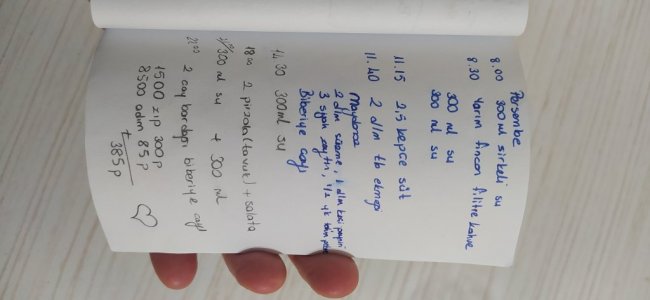 Perşembe
8.00 300 ml sirkeli su
8.30 Yarım fincan filitre kahve
300 ml su
300 ml su
11.15 2,5 kepçe süt
11.40 2 dlm tb ekmeği
Maydanoz
2 dlm süzme, 1 dlm keçi peyniri
3 syah zeytin, 1/2 yk
Biberiye çayı
14.30 300ml su
18.00 2 pirzola (tavuk) + salata
300 ml su + 300 ml
2 çay bardağı biberiye çayı
1500 zıp 300 p
8500 adım 85 p
+
385 p